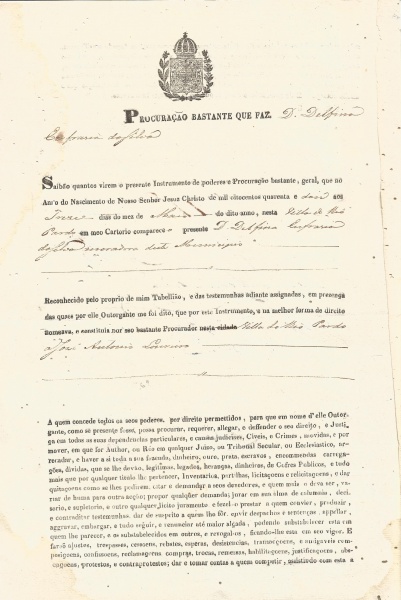 PROCURAÇÃO BASTANTE QUE FAZ. D. Delfina
Eufrazia da Silva
Saibão quantos virem o presente Instrumento de poderes e Procuração bastante, geral, que no
Anno do Nascimento de Nosso Senhor Jesus Christo de mil oitocentos quarenta e dois aos
Treze dias do mez de Maio do dito anno, nesta Villa do Rio
Pardo em meu Cartorio compareceo presente D. Delfina Eufrazia
da Silva moradora deste Municipio
Reconhecido pelo proprio de mim Tabellião, e das testemunhas adiante assignadas, em presença
das quaes por elle Outorgante me foi dito, que por este Instrumento, e na melhor forma de direito
nomeava, e constituia por seu bastante Procurador nesta cidade Villa do Rio Pardo
a José Antonio
A quem concede todos os seus poderes, por direito permettidos, para que em nome d'elle Outor-
gante, como se presente fosse, possa procurar, requerer, allegar, e defender o seu direito, e Justi-
ça em todas as suas dependencias particulares, e causas judiciaes, Civeis, e Crimes, movidas, e por
mover, em que for Author, ou Réo em qualquer Juizo, ou Tribunal Secular, ou Ecclesiastico, ar-
recadar, e haver a si toda a sua fazenda, dinheiro, ouro, prata, escravos, encommendas, carrega-
ções, dividas, que se lhe devão, legitimas, legados, heranças, dinheiros, de Cofres Publicos, e tudo
mais que por qualquer titulo lhe pertencer, Inventarios, partilhas, licitações, e relicitações, e dar
quitações como se lhes pedirem, citar e demandar a seus devedores, e quem mais o deva ser, va-
riar de huma para outra acção; propor qualquer demanda, jurar em sua alma de calumnia, deci-
sorio, e supletorio, e outro qualquer licito juramento e fazel-o prestar a quem convier, produzir,
e contradizer testemunhas, dar de suspeito a quem lhe fôr, ouvir despachos e sentenças, appellar,
aggravar, embargar, e tudo seguir, e renunciar até maior alçada, podendo substabelecer esta em
quem lhe parecer, e os substabelecidos em outros, e revogal-os, ficando-lhe esta em seu vigor. E
farão ajustes, trespasses, cessões, rebates, esperas, desistencias, transacções, e amigaveis com-
posições, confissões, reclamações, compras, trocas, remessas, habilitações, justificações, abs-
tenções, protestos, e contraprotestos; dar e tomar contas a quem competir, assistindo com esta a